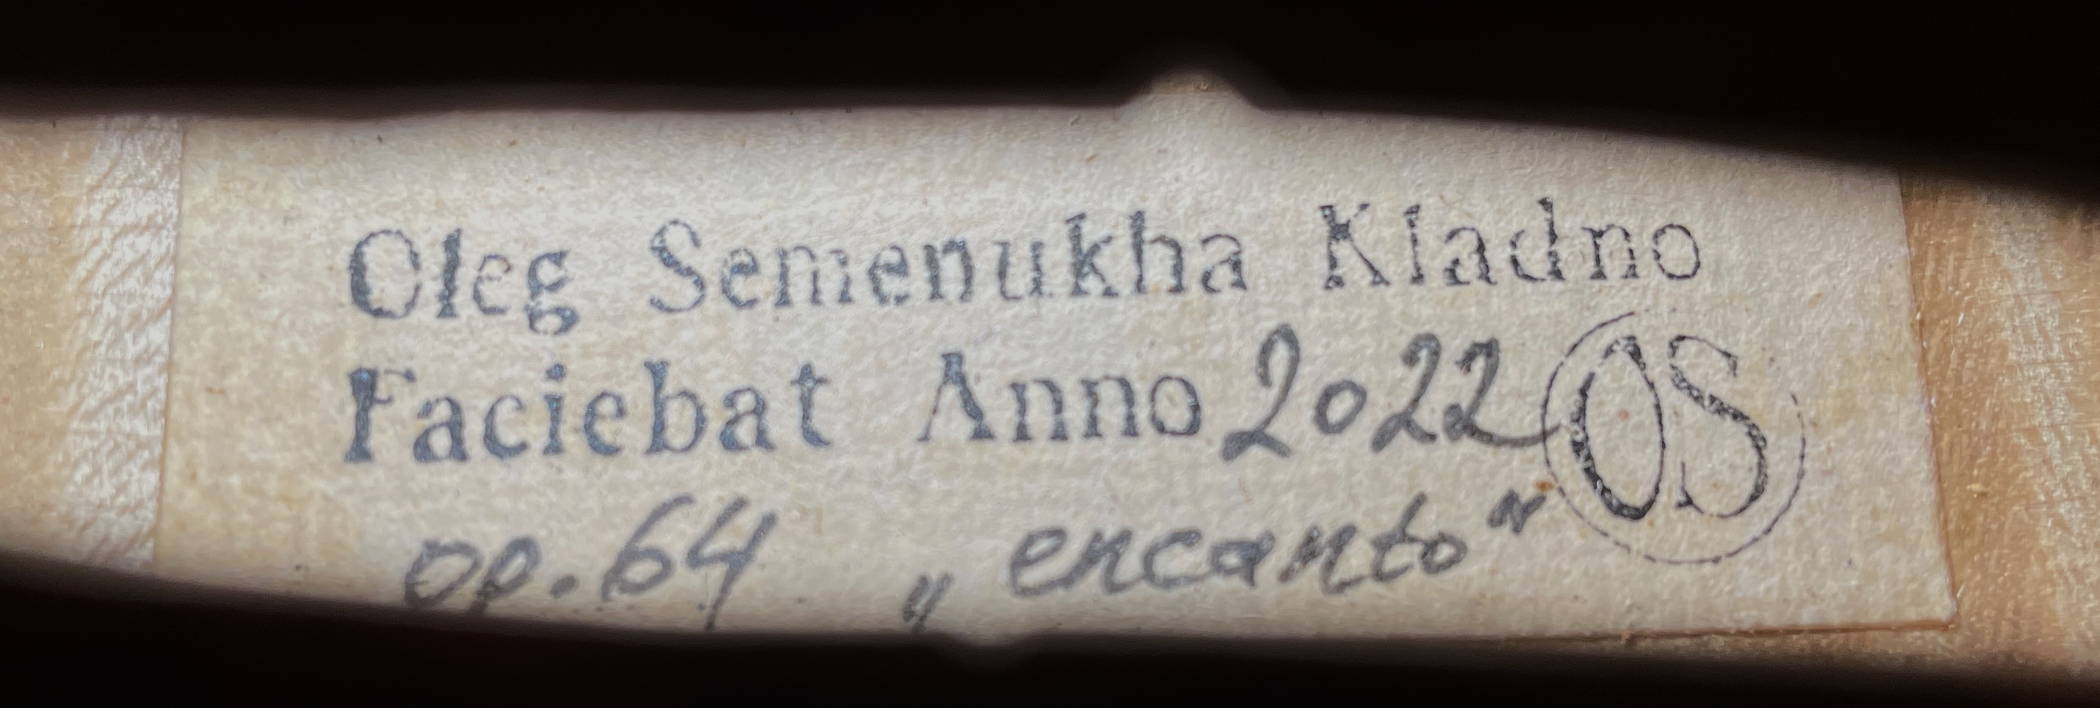 Oleg Semenukha Kladno
Faciebat Anno 2022 OS
op. 64 „encanto"